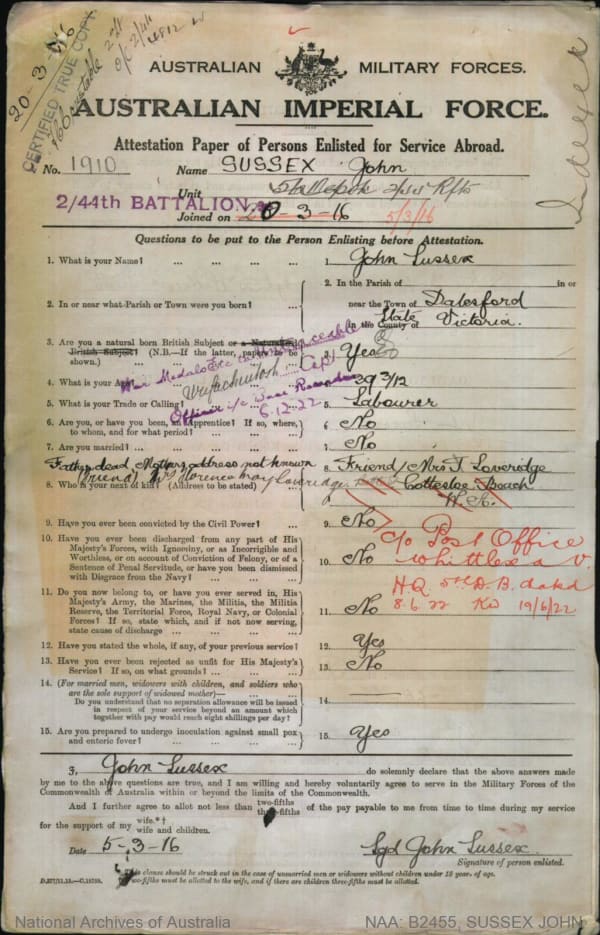 20-3-16
CERTIFIED TRUE COPY
AUSTRALIAN MILITARY FORCES.
AUSTRALIAN IMPERIAL FORCE.
Attestation Paper of Persons Enlisted for Service Abroad.
No. 1910 Name SUSSEX John
Unit
2/44th BATTALION
Joined on 20-3-16 5/3/16
Questions to be put to the Person Enlisting before Attestation.
1. What is your Name? ... ... ... 1. John Sussex
2. In or near what Parish or Town were you born? ... 2. In the Parish of in or
near the Town of Dalesford
in the County of State Victoria.
3. Are you a natural born British Subject or a Naturalized
British Subject? (N.B.—If the latter, papers to be
shown.) 3. Yes
4. What is your Age? 4. 39 3/12
5. What is your Trade or Calling? 5. Labourer
Officer i/c Base Records
6.12.22
6. Are you, or have you been, an Apprentice? If so, where,
to whom, and for what period? ... 6. No
7. Are you married? ... 7. No
Father dead Mothers address not known
8. Who is your next of kin? (Address to be stated) 8. Friend/Mrs T. Loveridge
Cottesloe Beach
W.A.
9. Have you ever been convicted by the Civil Power? ... 9. No
c/o Post Office
Whittlesea V.
H.Q. 5th
8.6.22 19/6/22
10. Have you ever been discharged from any part of His
Majesty's Forces, with Ignominy, or as Incorrigible and
Worthless, or on account of Conviction of Felony, or of a
Sentence of Penal Servitude, or have you been dismissed
with Disgrace from the Navy? ... 10. No
11. Do you now belong to, or have you ever served in, His
Majesty's Army, the Marines, the Militia, the Militia
Reserve, the Territorial Force, Royal Navy, or Colonial
Forces? If so, state which, and if not now serving,
state cause of discharge ... 11. No
12. Have you stated the whole, if any, of your previous service? 12. Yes
13. Have you ever been rejected as unfit for His Majesty's
Service? If so, on what grounds? ... 13. No
14. (For married men, widowers with children, and soldiers who
are the sole support of widowed mother)—
Do you understand that no separation allowance will be issued
in respect of your service beyond an amount which
together with pay would reach eight shillings per day? 14. —
15. Are you prepared to undergo inoculation against small pox
and enteric fever? ... 15. Yes
I, John Sussex do solemnly declare that the above answers made
by me to the above questions are true, and I am willing and hereby voluntarily agree to serve in the Military Forces of the
Commonwealth of Australia within or beyond the limits of the Commonwealth.
And I further agree to allot not less than two-fifths three-fifths of the pay payable to me from time to time during my service
for the support of my wife.*† wife and children.
Date 5-3-16 Sgd John Sussex.
Signature of person enlisted.
This clause should be struck out in the case of unmarried men or widowers without children under 18 years of age.
Two-fifths must be allotted to the wife, and if there are children three-fifths must be allotted.
National Archives of Australia NAA: B2455, SUSSEX JOHN